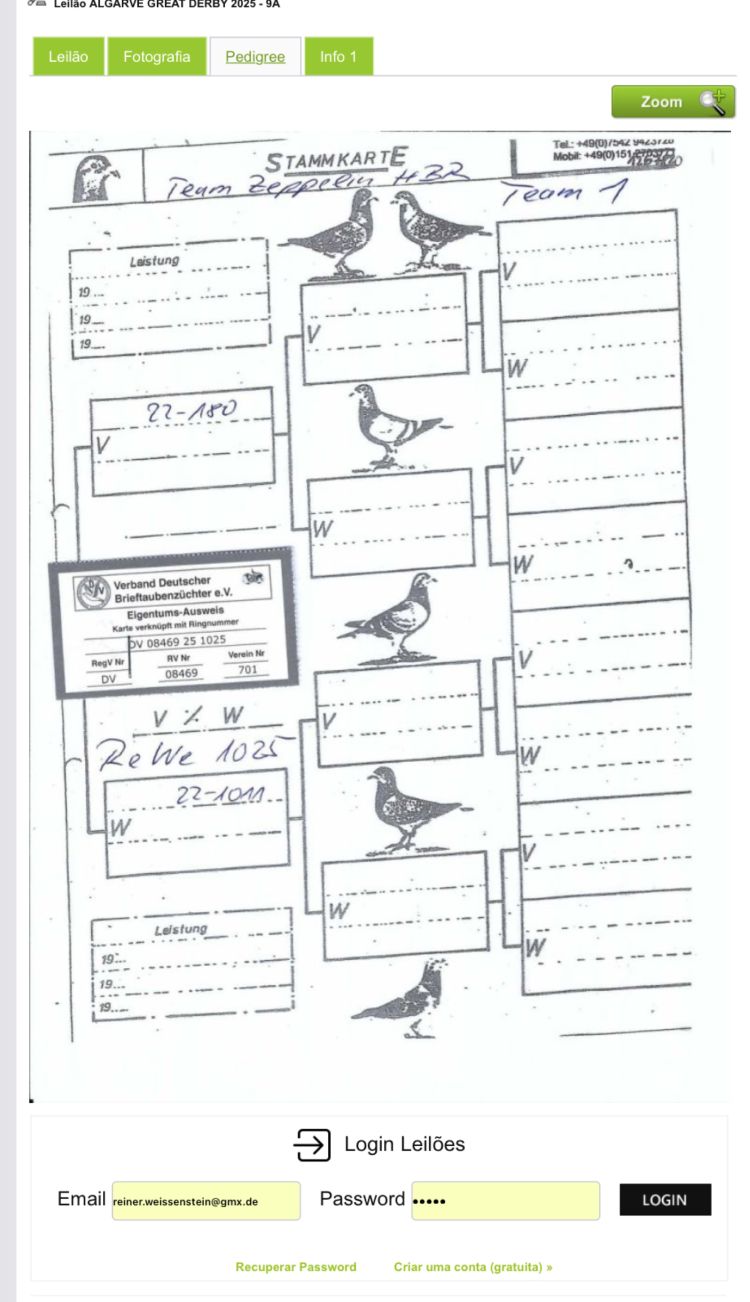 Leilão ALGARVE GREAT DERBY 2025 - 9A
Leilão Fotografia Pedigree Info 1
Zoom
STAMMKARTE
Tel.: +49(0)7542
Mobil: +49(0)151
Team Zeppelin HBR
Team 1
Leistung
19
19
19
V
W
V
22-180
V
V
W
W
Verband Deutscher
Brieftaubenzüchter e.V.
Eigentums-Ausweis
Karte verknüpft mit Ringnummer
DV 08469 25 1025
RegV Nr RV Nr Verein Nr
DV 08469 701
V % W
ReWe 1025
V
V
W
22-1011
W
W
V
W
Leistung
19
19
19
Login Leilões
Email reiner.weissenstein@gmx.de Password ••••• LOGIN
Recuperar Password Criar uma conta (gratuita) »